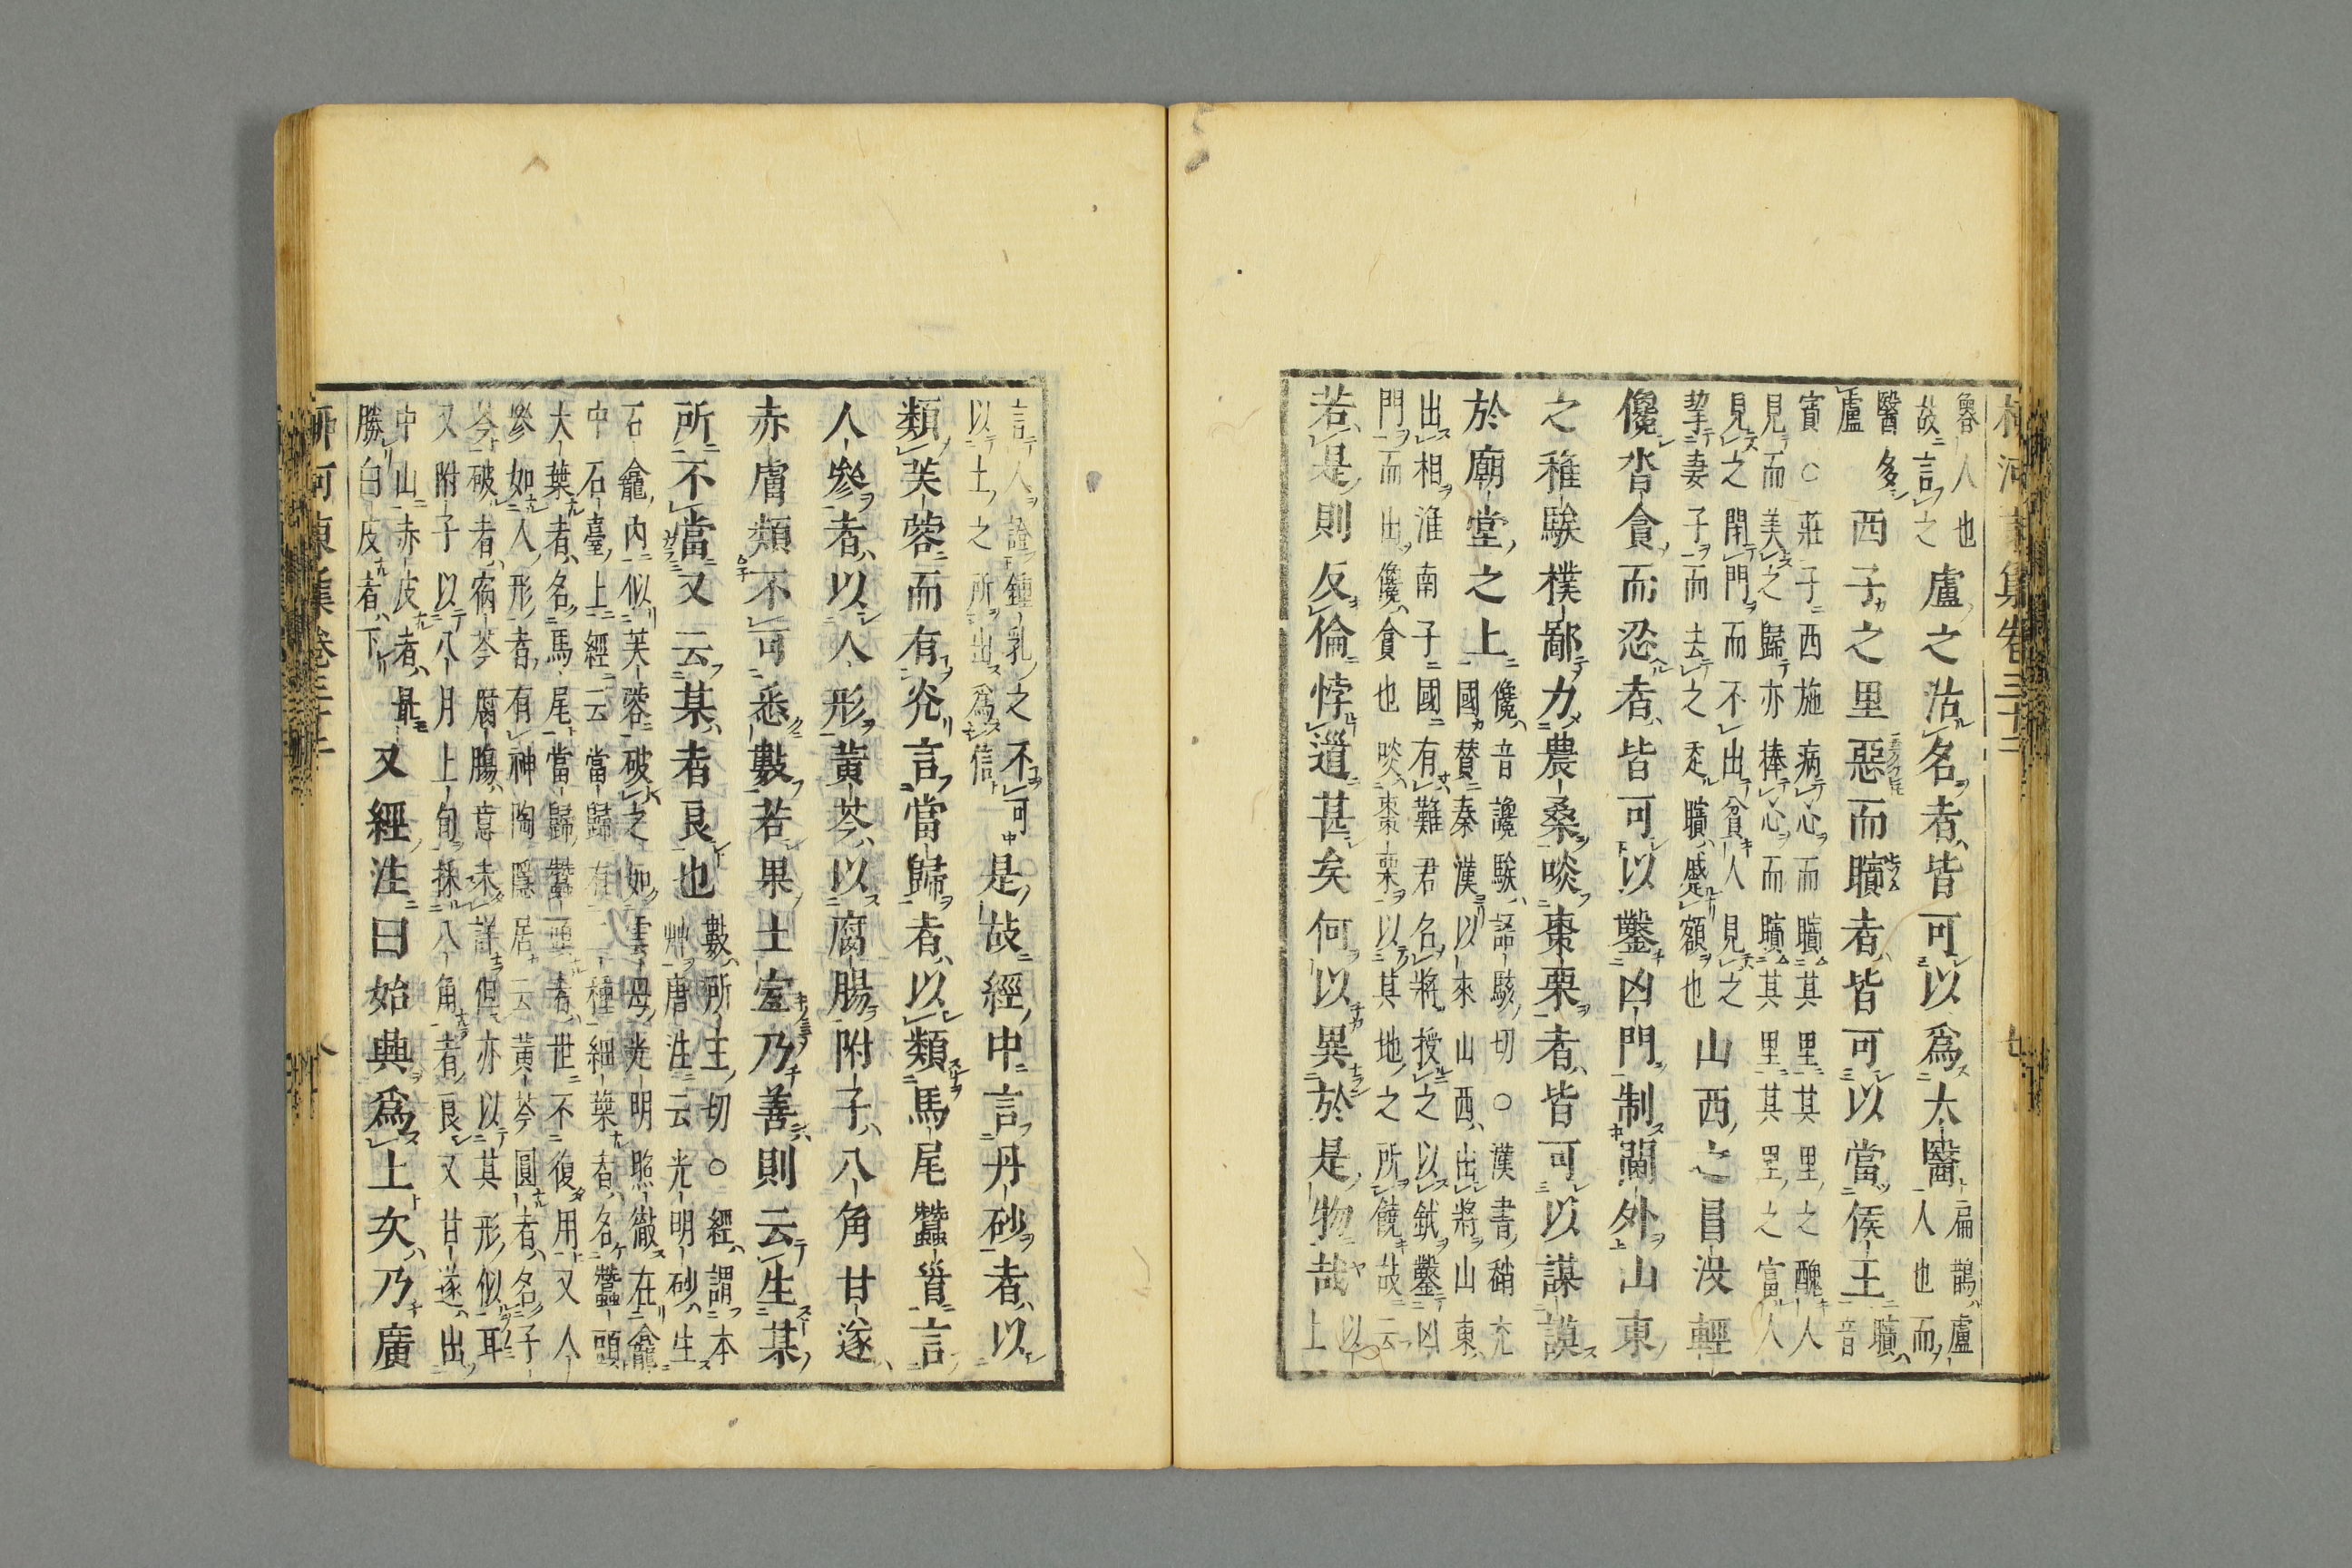 魯人也
故言之
盧之沽名者皆可以爲太醫
扁鵲盧
人也而
醫多
盧
西子之里惡而矉者皆可以當侯王
矉
音
賓○莊子西施病心而矉其里其里之醜人
見而美之歸亦捧心而矉其里其里之富人
見之閉門而不出貧人見之
挈妻子而去之走矉蹙額也
山西之冒沒輕
儳沓貪而忍者皆可以鑿凶門制閫外山東
之稚騃樸鄙力農桑啖棗栗者皆可以謀謨
於廟堂之上
儳音讒騃語駭切○漢書
國贊秦漢以來山西出將山東
出相淮南子國有難君名將授之以鉞鑿凶
門而出儳貪也啖棗栗以其地之所饒故云
若是則反倫悖道甚矣何以異於是物哉
以
上
言人證鍾乳之
以土之所出爲信
不可
是故經中言丹砂者以
類芙蓉而有光言當歸者以類馬尾蠶首言
人參者以人形黃芩以腐腸附子八角甘遂
赤膚類不可悉數若果土宜乃善則云生某
所不當又云某者良也
數所主切○經謂本
艸唐注云光明砂生
石龕内似芙蓉破之如雲母光明照徹在龕
中石臺上經云當歸有二種細葉者名蠶頭
大葉者名馬尾當歸蠶頭者世不復用又人
參如人形者有神陶隱居云黃芩圓者名子
芩破者宿芩腐腸意未詳但亦以其形似耳
又附子以八月上旬採八角者良又甘遂出
中山赤皮者最
勝白皮者下
又經注曰始興爲上次乃廣
柳河東集卷三十二